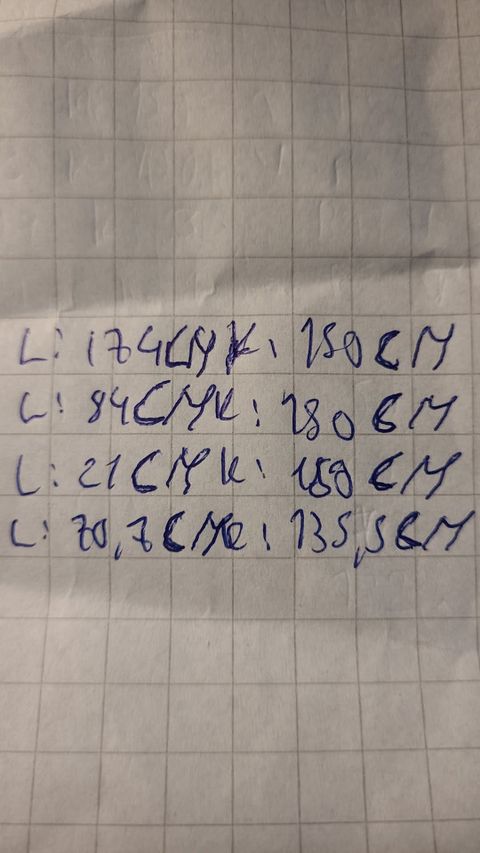 L: 174CM K: 150 CM
L: 84CM K: 150 CM
L: 21CM K: 150 CM
L: 70,7CM K: 135,5CM